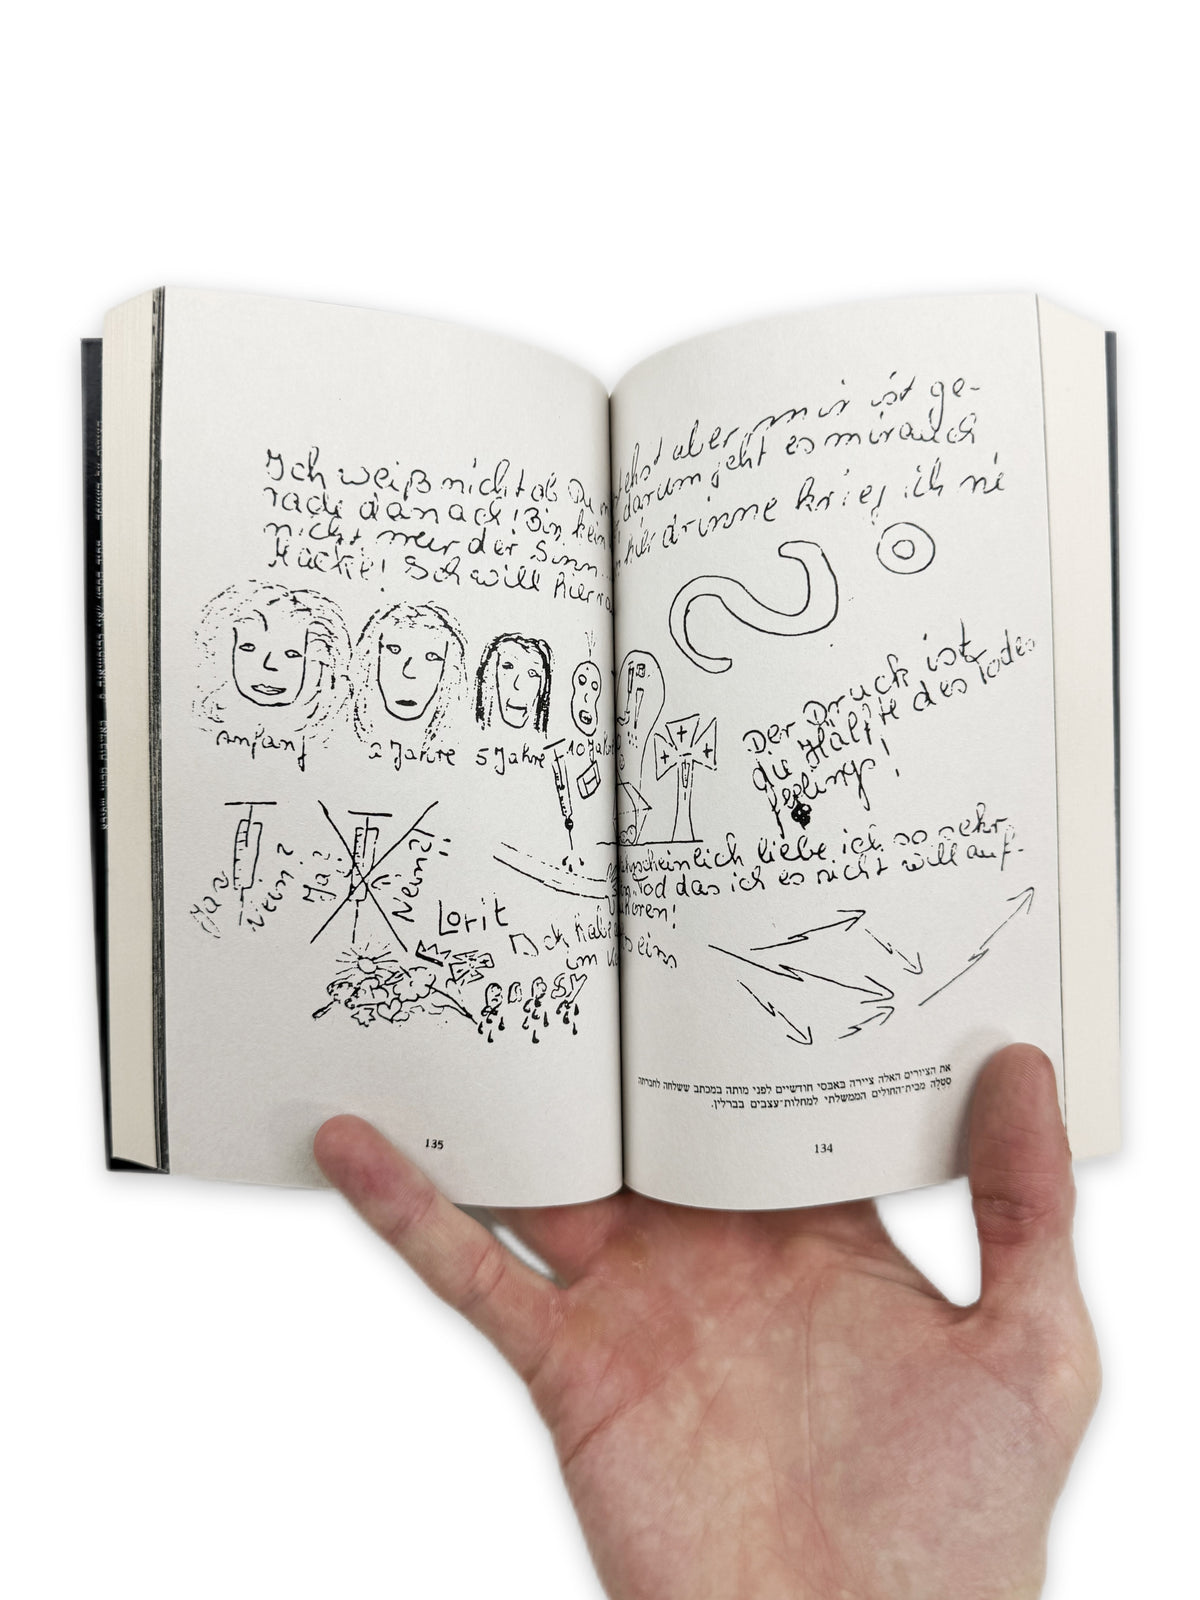 Ich weiß nicht ob Du
stehst aber mir ist ge-
rade danach! Bin kein
darum geht es mir auch
nicht mehr der Sinn...
hier drinne krieg ich ne
Macke! Ich will hier
Anfang
2 Jahre
5 Jahre
10 Jahre
Der Druck ist
die Hälfte des Todes
feelings!
Ja?
Nein?
Ja?
Nein?!
wahrscheinlich liebe ich so sehr
Tod das ich es nicht will auf-
hören!
Lorit
Ich habe
im
את הציורים האלה ציירה באבסי חודשיים לפני מותה במכתב ששלחה לחברתה
סטלה מבית־החולים הממשלתי למחלות־עצבים בברלין.
135
134